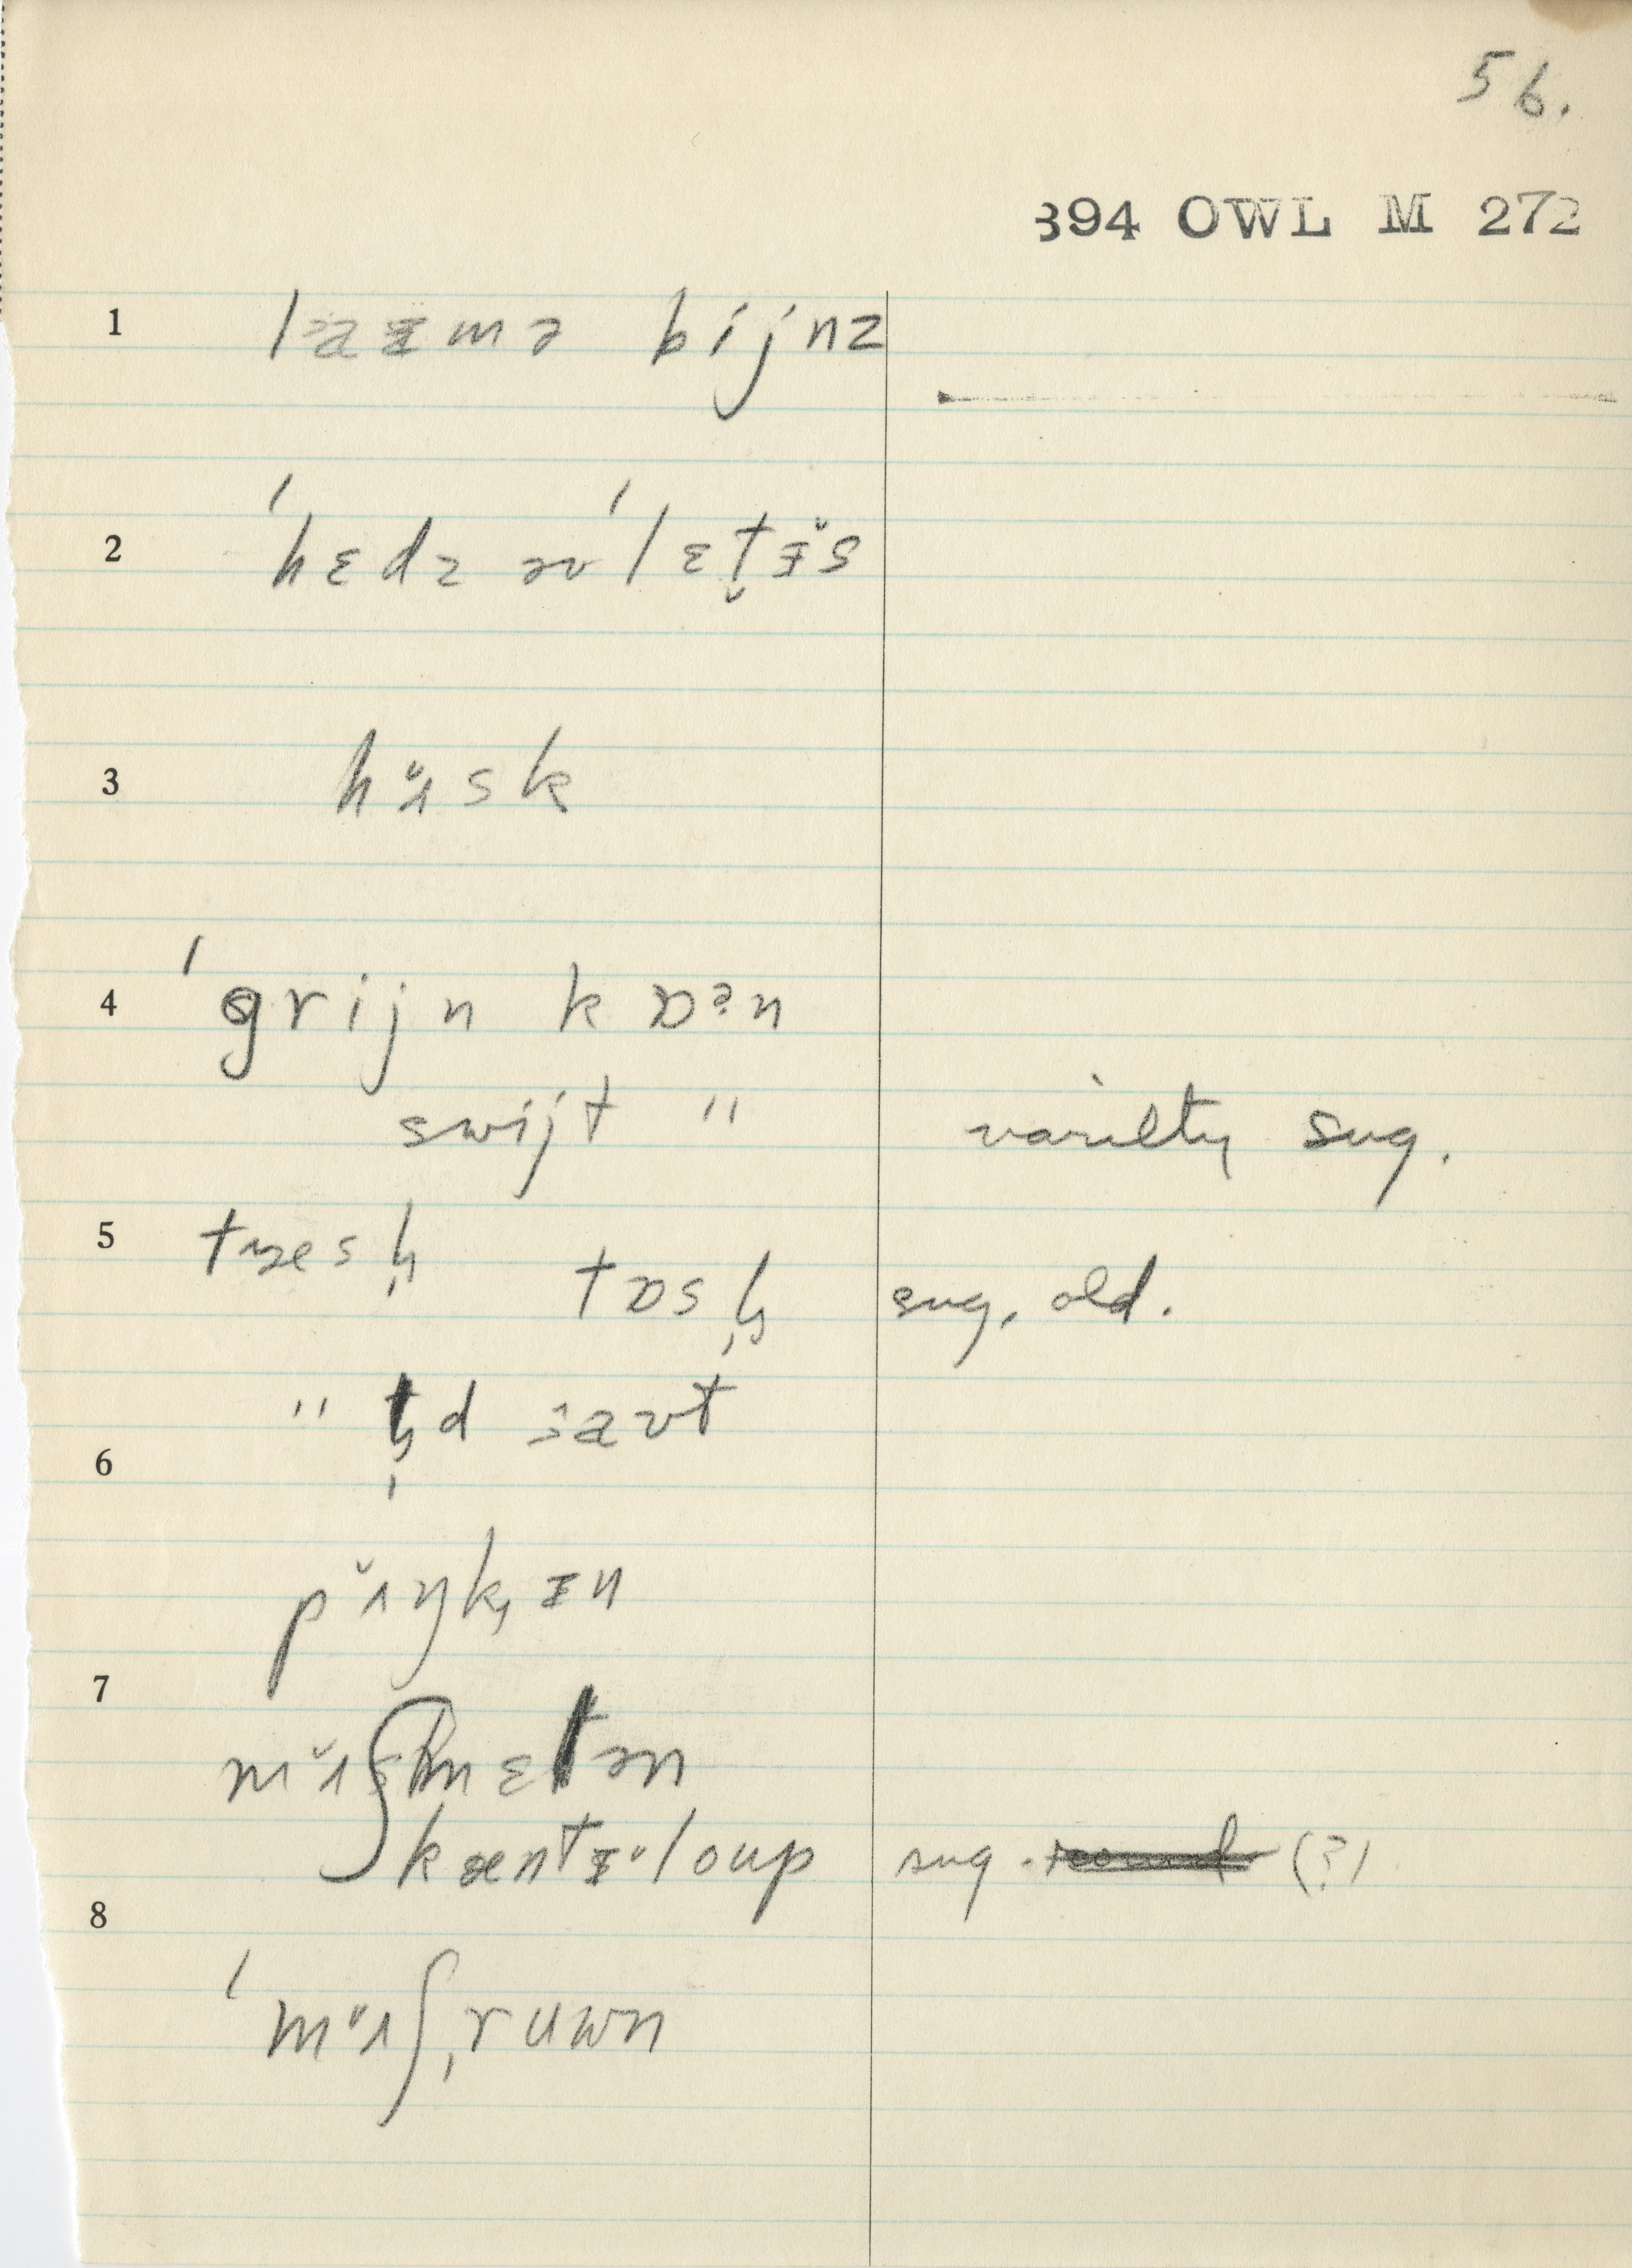 56.
394 OWL M 272
1 laɪmə bijnz
2 ˈhɛdz əv ˈlɛt̬ɪ̆s
3 hʌ̆sk
4 ˈgrijn kɒən
swijt " variety sug.
5 tɒsl̩ sug. old.
" l̩d aʊt
6
pʌ̆ŋk̩ɪn
7
mʌ̆ʃmɛlən
kæntəˈloup sug. (?)
8
ˈmʌ̆ʃˌruwn